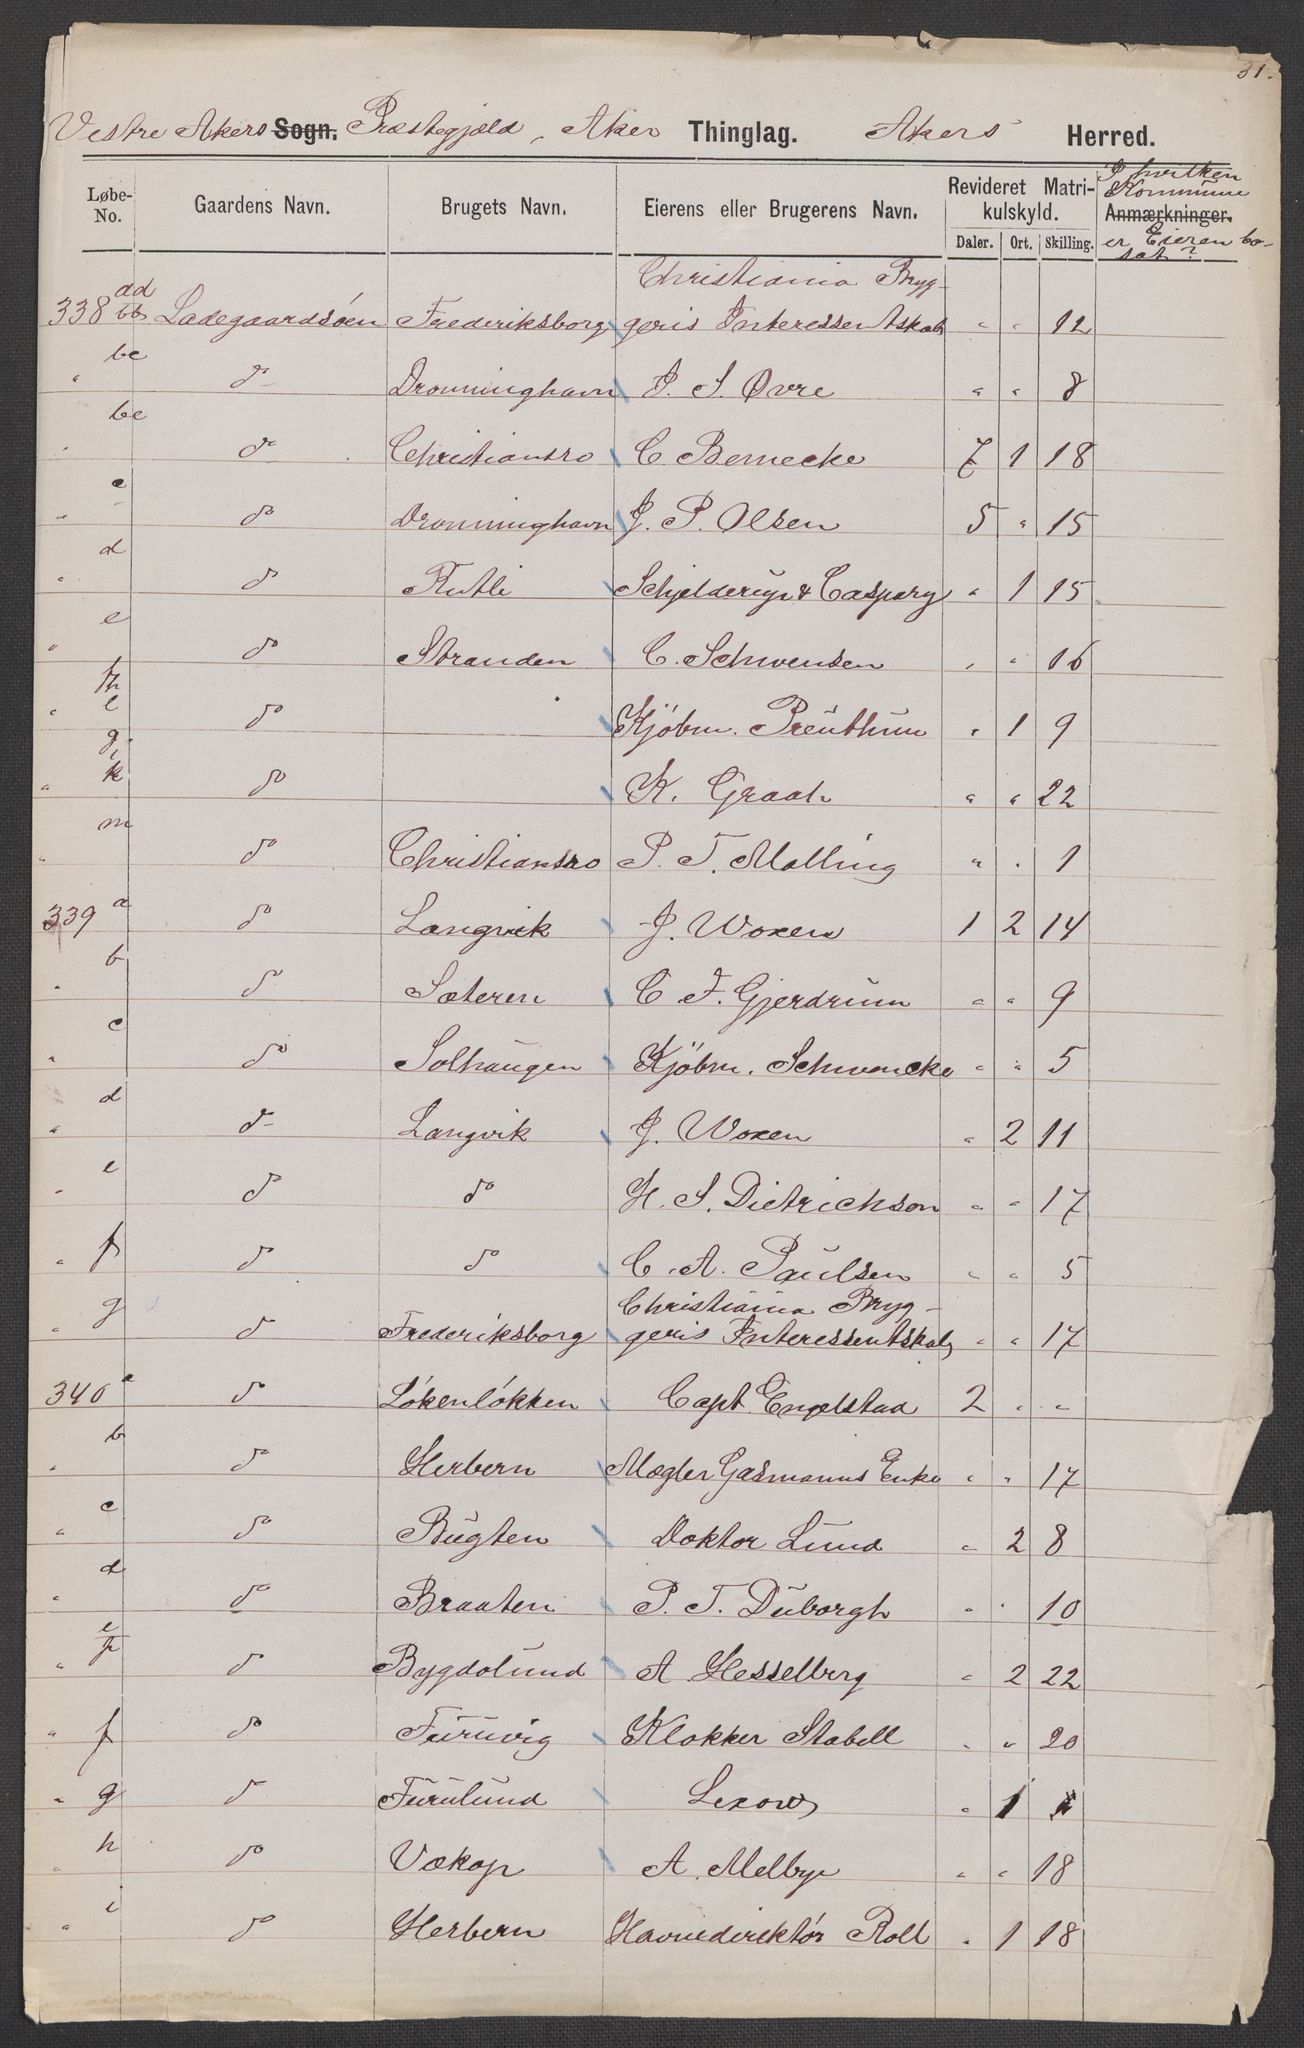 31.
Vestre Akers Sogn. Præstegjæld, Aker Thinglag. Akers Herred.
Løbe-No. Gaardens Navn. Brugets Navn. Eierens eller Brugerens Navn. Revideret Matrikulskyld. Daler. Ort. Skilling. Anmærkninger. I hvilken Kommune er Eieren bosat?
Christiania Bryg-
338 dd bb Ladegaardsöen Frederiksborg geris Interessentskab " " 12
" bc do Dronninghavn P. S. Øvre " " 8
" be do Christiansro C. Bernecke 7 1 18
" c do Dronninghavn J. P. Olsen 5 " 15
" d do Rutli Schjelderup & Caspary " 1 15
" e do Stranden C. Schwensen " " 16
" fh l do Kjöbm. Preuthun " 1 9
" g i k do K. Graah " " 22
" m do Christiansro P. T. Malling " " 1
339 a do Langvik J. Woxen 1 2 14
" b do Sæteren C. F. Gjerdrum " " 9
" c do Solhaugen Kjöbm. Schwencke " " 5
" d do Langvik J. Woxen " 2 11
" e do do H. S. Dietrichson " " 17
" f do do C. A. Paulsen " " 5
Christiania Bryg-
" g do Frederiksborg geris Interessentskab " " 17
340 a do Lökenlökken Capt. Engelstad 2 " "
" b do Herbern Mægler Gasmanns Enke " " 17
" c do Bugten Doktor Lund " 2 8
" d do Braaten P. T. Duborgh " " 10
" e p do Bygdölund A Hesselberg " 2 22
" f do Furuvig Klokker Stabell " " 20
" g do Furulund Lexow " 1
" h do Vækop A. Melbye " " 18
" i do Herbern Havnedirektör Roll " 1 18